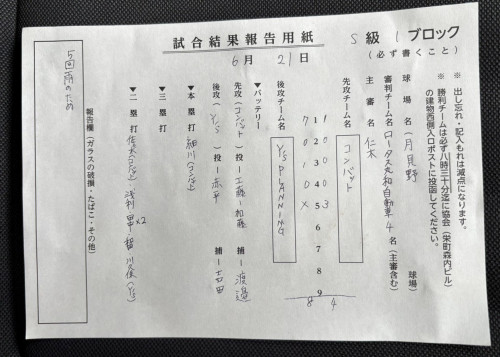 試合結果報告用紙
S級 1ブロック
(必ず書くこと)
6月21日
※ 出し忘れ・記入もれは減点になります。
※ 勝利チームは必ず八時三十分迄に協会(栄町森内ビル
の建物西側入口ポストに投函してください。
球場名(月見野 球場)
審判チーム名 ロータス丸和自動車 4名(主審含む)
主審名 仁木
先攻チーム名 コンバット
1 2 3 4 5 6 7 8 9
4
7 0 1 0 X 8
後攻チーム名 Y's PLANNING
▼バッテリー
先攻(コンバット)投ー工藤ー加藤 捕ー渡邉
後攻(Y's)投ー赤平 捕ー吉田
▼本塁打 細川(コンバット)
▼三塁打
▼二塁打 浅利 ×2 川俣(Y's)
報告欄(ガラスの破損・たばこ・その他)
5回雨のため